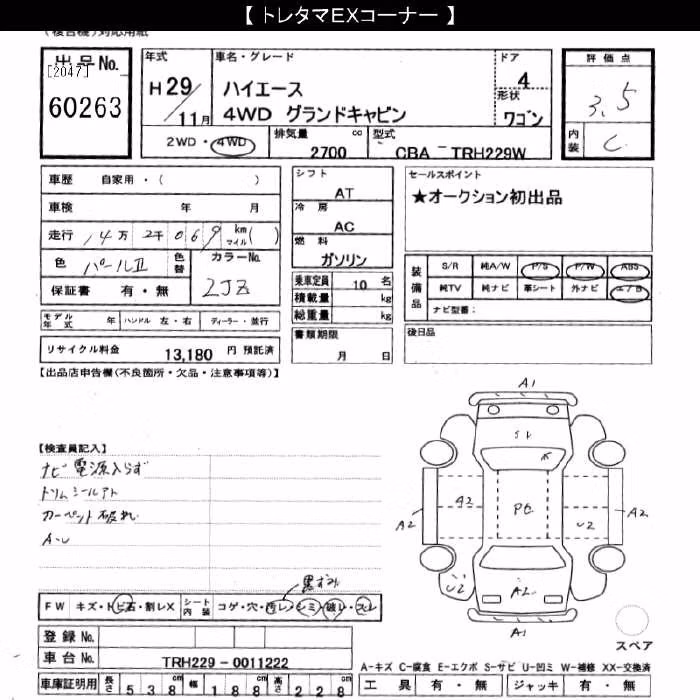 【 トレタマEXコーナー 】
(複合機)対応用紙
出品No.
[2047]
60263
年式
H29/11月
車名・グレード
ハイエース
4WD グランドキャビン
ドア
4
形状
ワゴン
評価点
3.5
内装
C
2WD・4WD
排気量 cc
2700
型式
CBA - TRH229W
車歴 自家用・( )
車検 年 月
走行 14万 2千 069 km マイル( )
色 パールII 色替
カラーNo.
2JZ
保証書 有・無
シフト
AT
冷房
AC
燃料
ガソリン
乗車定員 10 名
積載量 kg
総重量 kg
セールスポイント
★オークション初出品
装備品
S/R 純A/W P/S P/W ABS
純TV 純ナビ 革シート 外ナビ エアB
ナビ型番:
モデル年式 年 ハンドル 左・右 ディーラー・並行
リサイクル料金 13,180 円 預託済
書類期限
月 日
後日品
【出品店申告欄(不良箇所・欠品・注意事項等)】
【検査員記入】
ナビ電源入らず
トリムシールアト
カーペット破れ
A-U
黒ずみ
FW キズ・トビ石・割レX シート内装 コゲ・穴・汚レ・シミ・破レ・スレ
登録No.
車台No. TRH229-0011222
車庫証明用 長さ 538 cm 幅 188 cm 高さ 228 cm
A1
A2
A2
PG
U2
A2
U2
A2
A1
スペア
A-キズ C-腐食 E-エクボ S-サビ U-凹ミ W-補修 XX-交換済
工具 有・無 ジャッキ 有・無